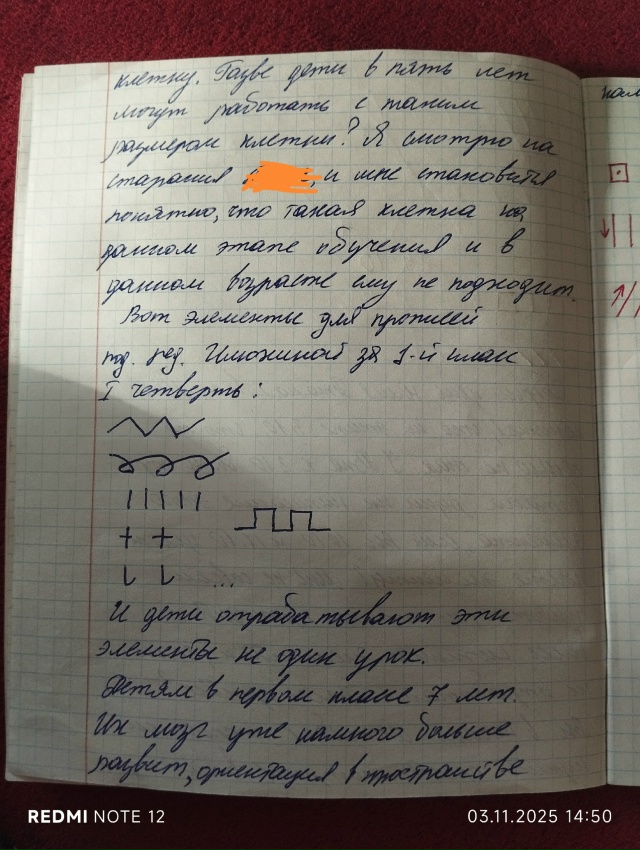 клетку. Разве дети в пять лет
могут работать с таким
размером клетки? Я смотрю на
старания и мне становится
понятно, что такая клетка на
данном этапе обучения и в
данном возрасте ему не подходит.
Вот элементы для прописей
под. ред. Илюхиной за 1-й класс
I четверть:
...
И дети отрабатывают эти
элементы не один урок.
Детям в первом класе 7 лет.
Их мозг уже намного больше
развит, ориентация в пространстве
REDMI NOTE 12
03.11.2025 14:50